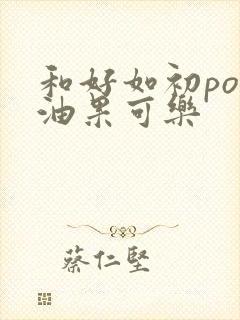 和好如初po
油果可樂
蔡仁堅